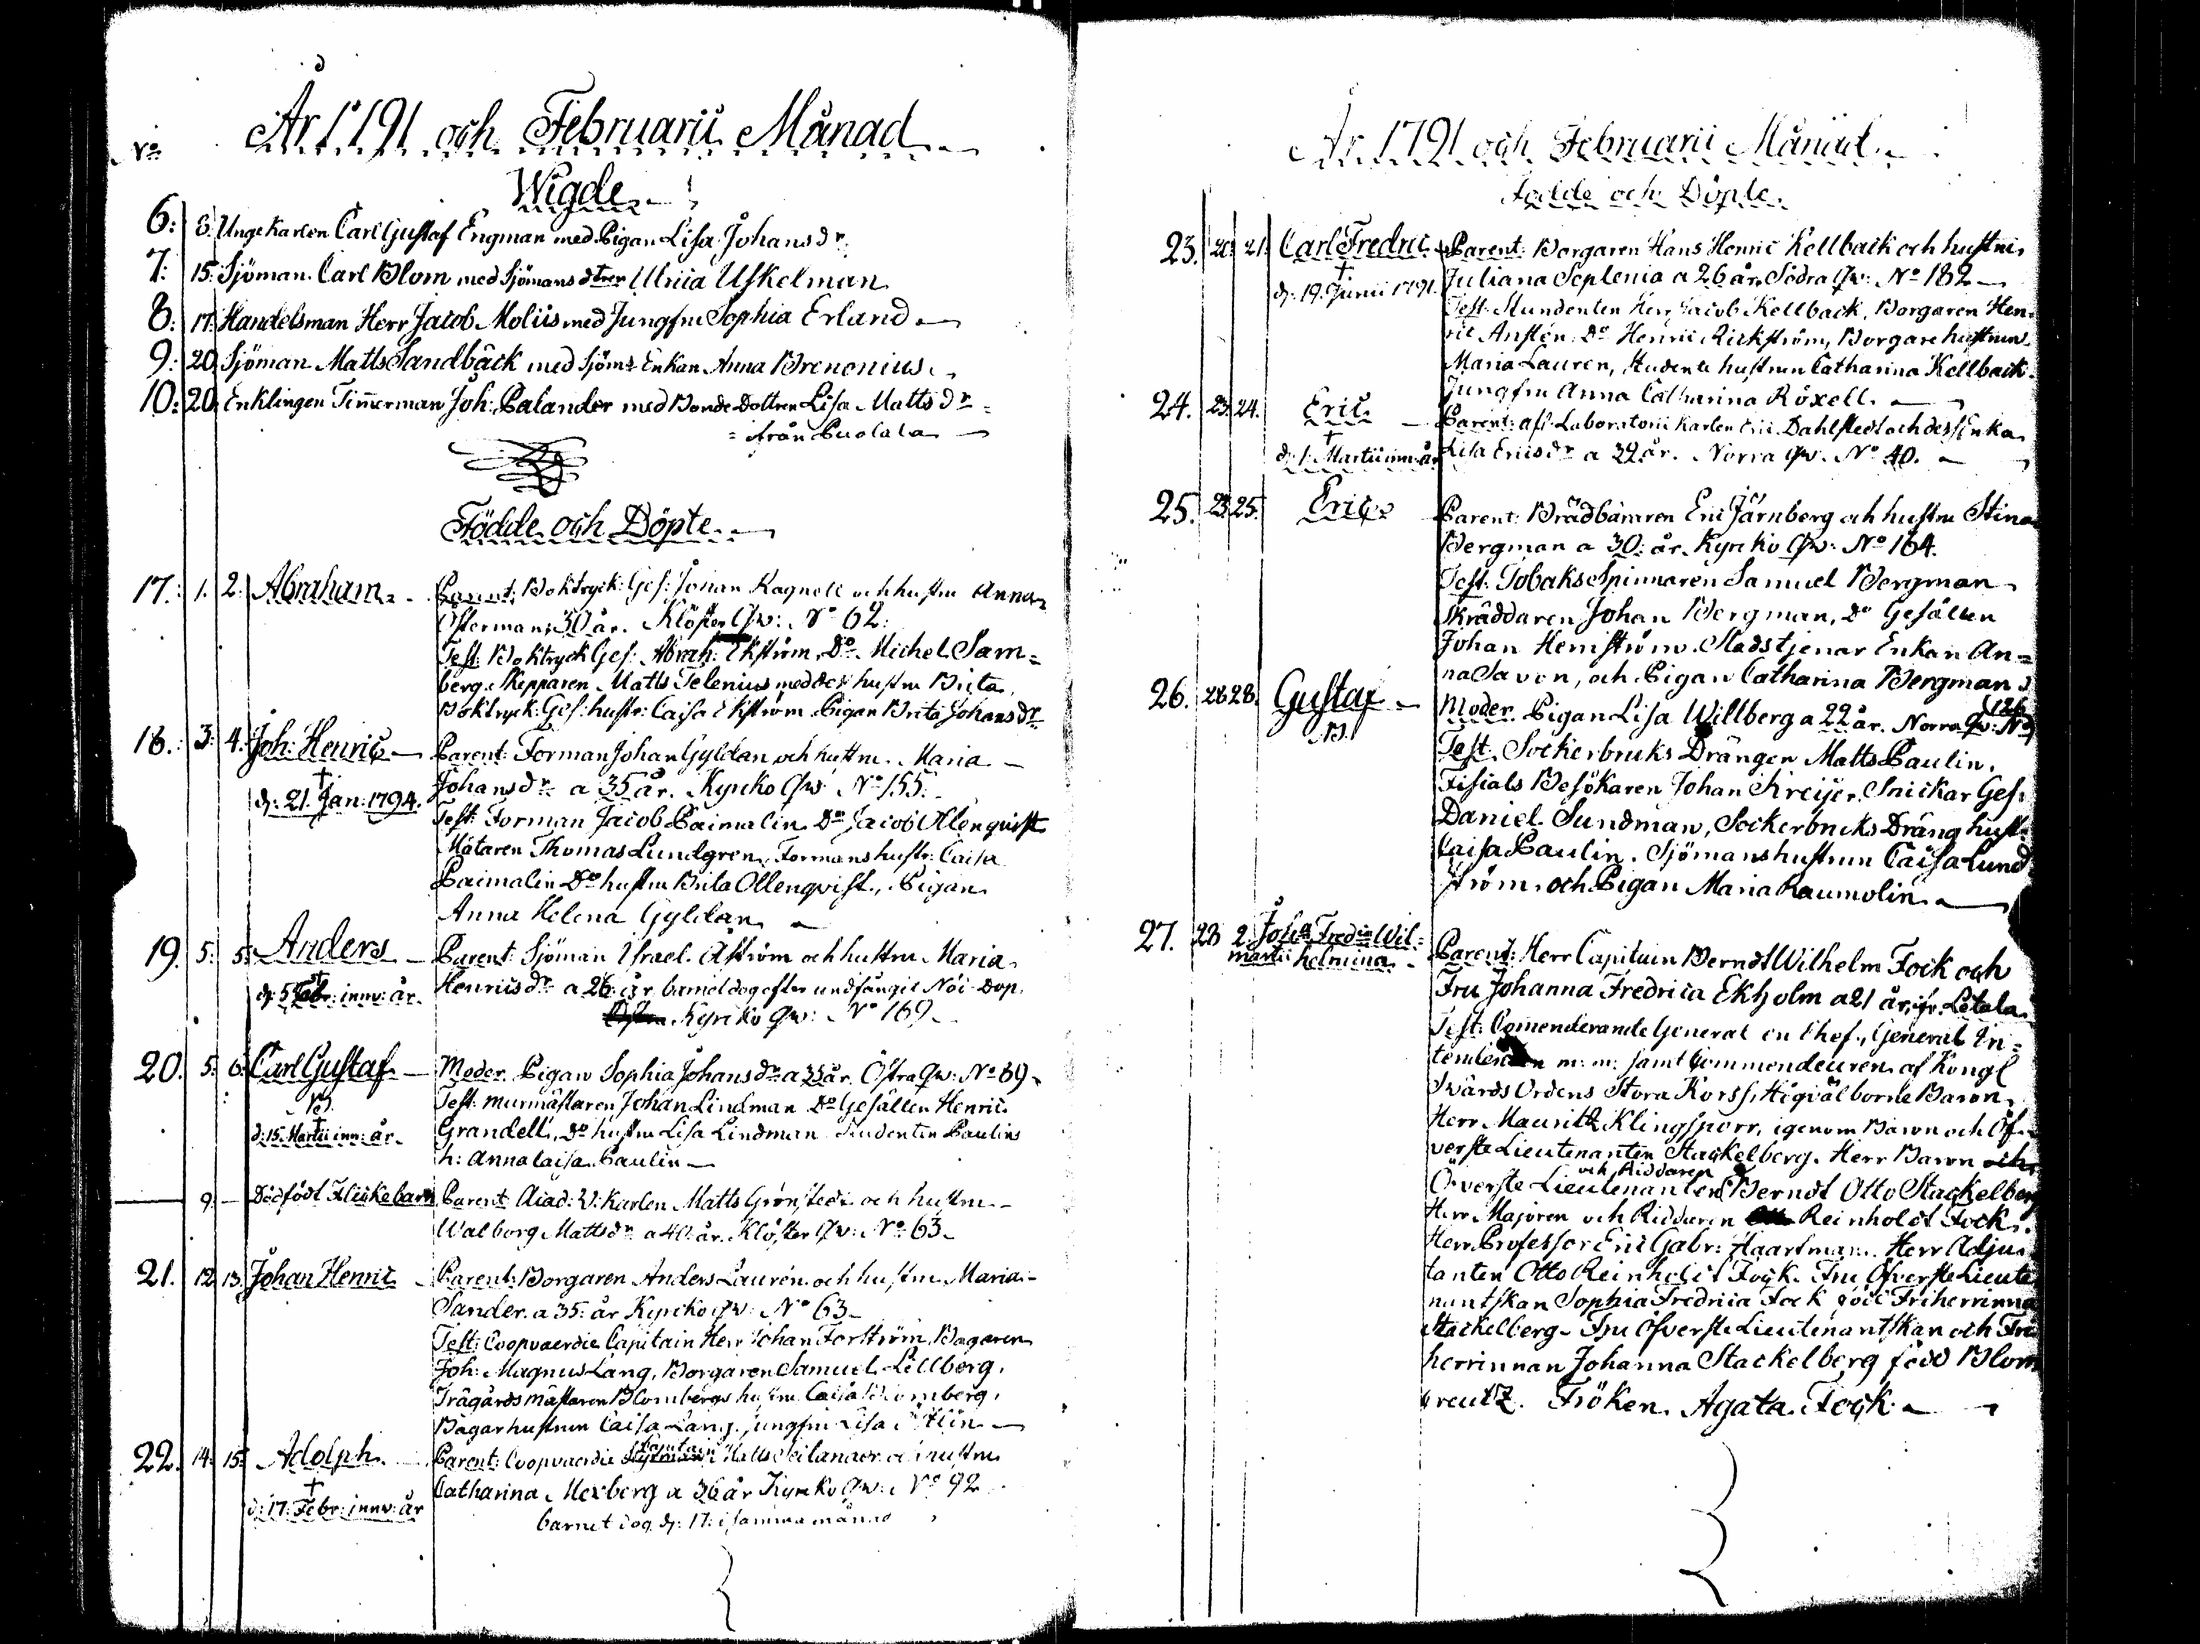 År 1791 och Februarii Månad
No
Wigde
6: 6. Ungekarlen Carl Gustaf Engman med Pigan Lisa Johansdr.
7: 15. Sjöman Carl Blom med Sjömansdtren Ulrica Uskelman
8: 17. Handelsman Herr Jacob Moliis med Jungfru Sophia Erland
9: 20. Sjöman Matts Sandbäck med Sjöms Enkan Anna Brenonius
10: 20. Enklingen Timmerman Joh: Palander med Bonde Dottren Lisa Mattsdr
= från Puolala
Födde och Döpte
17. 1. 2. Abraham Parent: Boktryck: Ges: Johan Ragnell och hustru Anna
Österman, 30 år. Klöster Qw: No 62.
Test: Boktryck Ges: Abrah: Ekström, Do Michel Sam=
berg, Skepparen Matts Telenius med dess hustru Brita,
Boktryck: Ges: hustr: Caisa Ekström Pigan Brita Johansdr
18. 3. 4. Joh: Henric Parent: Forman Johan Gyldan och hustru Maria
† d: 21. Jan: 1794. Johansdr a 35 år. Kyrcko Qw: No 155.
Test: Forman Jacob Paimalin Do Jacob Olenqvist
Mätaren Thomas Lundgren, Formans hustr: Caisa
Paimalin Do hustru Brita Ollenqvist, Pigan
Anna Helena Gyldan
19. 5. 5. Anders Parent: Sjöman Israel Åström och hustru Maria
† d: 5 Febr: innv: år. Henricsdr a 26 år barnet dog efter undfångit Nöd Dop.
Kyrcko Qw: No 169
20. 5. 6. Carl Gustaf Moder Pigan Sophia Johansdr a 35 år. Östra Qw: No 89
NB. Test: murmästaren Johan Lindman Do Gesällen Henric
† d: 15. Martii inn: år. Grandell, Do hustru Lisa Lindman Studenten Paulins
h: Anna Caisa Paulin
9. Dödfödt Flickebarn Parent: Acad: W: Karlen Matts Grönstedt och hustru
Walborg Mattsdr a 40 år. Klöster Qw: No 63.
21. 12. 13. Johan Henric Parent: Borgaren Anders Laurén och hustru Maria
Sander a 35 år Kyrcko Qw: No 63
Test: Coopvaerdie Capitain Herr Johan Forström, Bagaren
Joh: Magnus Lang, Borgaren Samuel Lillberg,
Trägårdsmästaren Blombergs hustru Caisa Blomberg,
Bagarhustrun Caisa Lang, Jungfru Lisa
22. 14. 15. Adolph Parent: Coopvaerdie Capitain Matts och hustru
† d: 17. Febr: innv: år Catharina Mexberg a 36 år Kyrcko Qw: No 92
barnet dog d: 17: i samma månad
År 1791 och Februarii Månad
Födde och Döpte
23. 20. 21. Carl Fredric Parent: Borgaren Hans Henric Kellback och hustru
† d: 19. Junii 1791. Juliana Seplenia a 26 år. Södra Qw: No 182
Test: Studenten Herr Jacob Kellback, Borgaren Hen=
ric Anstén, Do Henric Rickström, Borgare hustrun
Maria Lauren, Studente hustrun Catharina Kellback
Jungfru Anna Catharina Röxell.
24. 23. 24. Eric Parent: afl: Laboratorii Karlen Eric Dahlstedt och dess Enka
† d: 1. Martii inn: år Lisa Ericsdr a 39 år. Norra Qw: No 40.
25. 23. 25. Eric Parent: Brädbäraren Eric Järnberg och hustru Stina
Bergman a 30 år. Kyrcko Qw: No 164.
Test: Tobaks Spinnaren Samuel Bergman
Skräddaren Johan Bergman, Do Gesällen
Johan Hemström. Stadstjenar Enkan An=
na Savon, och Pigan Catharina Bergman
26. 28. 28. Gustaf Moder Pigan Lisa Willberg a 22 år. Norra Qw: No 126
NB. Test: Sockerbruks Drängen Matts Paulin,
Fiscals Besökaren Johan Kreijer, Snickar Ges:
Daniel Sundman, Sockerbruks Dräng hustr:
Caisa Paulin. Sjömanshustrun Caisa Lund
ström, och Pigan Maria Raumolin
27. 28 2. martii Joha Fredca Wil=
helmina
Parent: Herr Capitain Berndt Wilhelm Fock och
Fru Johanna Fredrica Ekholm a 21 år, fr. Letala
Test: Comenderande General en Chef, General In=
tendenten m: m: samt Commendeuren af Kongl
Swärds Ordens Stora Korss, Högvälborne Baron
Herr Mauritz Klingsporr, igenom Baron och Öf=
verste Lieutenanten Stackelberg. Herr Baron
Öfverste Lieutenanten och Riddaren Berndt Otto Stackelberg
Herr Majoren och Riddaren Reinholdt Fock.
Herr Professor Eric Gabr: Haartman. Herr Adju=
tanten Otto Reinholdt Fock. Fru Öfverste Lieute
nantskan Sophia Fredrica Fock född Friherrinna
Stackelberg. Fru Öfverste Lieutenantskan och Fri
herrinnan Johanna Stackelberg född Blom
creutz. Fröken Agata Fock